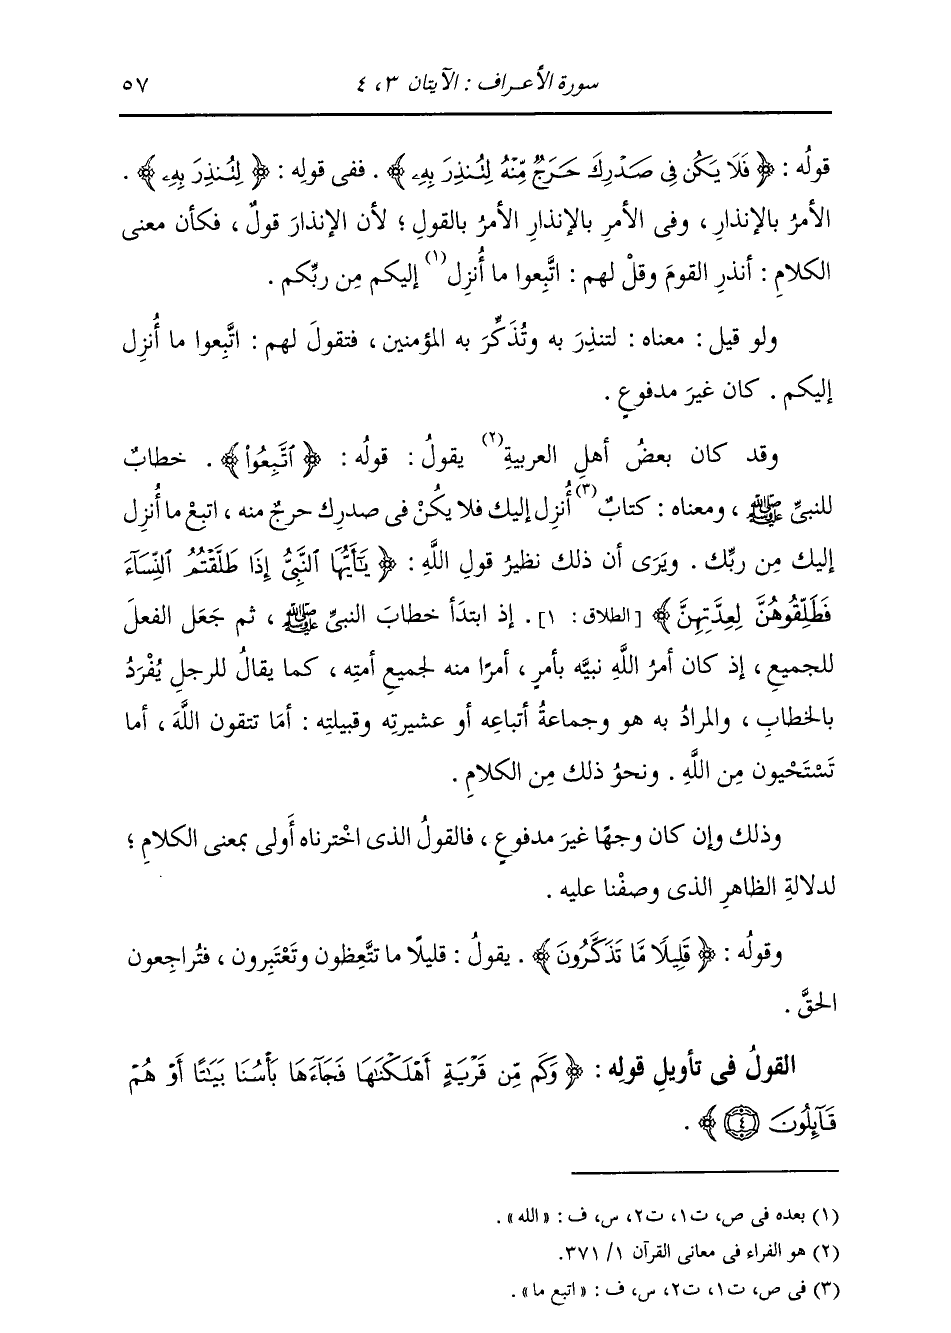 سورة الأعـراف : الآيتان ٣، ٤ ٥٧
قولُه : ﴿ فَلَا يَكُن فِى صَدْرِكَ حَرَجٌ مِّنْهُ لِتُنذِرَ بِهِۦ ﴾ . ففى قولِه : ﴿ لِتُنذِرَ بِهِۦ ﴾ .
الأمرُ بالإنذارِ ، وفى الأمرِ بالإنذارِ الأمرُ بالقولِ ؛ لأن الإنذارَ قولٌ ، فكأن معنى
الكلامِ : أنذرِ القومَ وقلْ لهم : اتَّبِعوا ما أُنزِل(١) إليكم مِن ربِّكم .
ولو قيل : معناه : لتنذِرَ به وتُذَكِّرَ به المؤمنين ، فتقولَ لهم : اتَّبِعوا ما أُنزِل
إليكم . كان غيرَ مدفوعٍ .
وقد كان بعضُ أهلِ العربيةِ(٢) يقولُ : قولُه : ﴿ ٱتَّبِعُوا۟ ﴾ . خطابٌ
للنبىِّ ﷺ ، ومعناه : كتابٌ(٣) أُنزِل إليك فلا يكُنْ فى صدرِك حرجٌ منه ، اتبِعْ ما أُنزِل
إليك مِن ربِّك . ويَرَى أن ذلك نظيرُ قولِ اللَّهِ : ﴿ يَٰٓأَيُّهَا ٱلنَّبِىُّ إِذَا طَلَّقْتُمُ ٱلنِّسَآءَ
فَطَلِّقُوهُنَّ لِعِدَّتِهِنَّ ﴾ [الطلاق : ١] . إذ ابتدَأ خطابَ النبىِّ ﷺ ، ثم جَعَل الفعلَ
للجميعِ ، إذ كان أمرُ اللَّهِ نبيَّه بأمرٍ ، أمرًا منه لجميعِ أمتِه ، كما يقالُ للرجلِ يُفْرَدُ
بالخطابِ ، والمرادُ به هو وجماعةُ أتباعِه أو عشيرتِه وقبيلتِه : أمَا تتقون اللَّهَ ، أما
تَسْتَحْيون مِن اللَّهِ . ونحوُ ذلك مِن الكلامِ .
وذلك وإن كان وجهًا غيرَ مدفوعٍ ، فالقولُ الذى اخْترناه أَولى بمعنى الكلامِ ؛
لدلالةِ الظاهرِ الذى وصفْنا عليه .
وقولُه : ﴿ قَلِيلًا مَّا تَذَكَّرُونَ ﴾ . يقولُ : قليلًا ما تتَّعِظون وتَعْتَبِرون ، فتُراجِعون
الحقَّ .
القولُ فى تأويلِ قولِه : ﴿ وَكَم مِّن قَرْيَةٍ أَهْلَكْنَٰهَا فَجَآءَهَا بَأْسُنَا بَيَٰتًا أَوْ هُمْ
قَآئِلُونَ ٤ ﴾ .
(١) بعده فى ص، ت١، ت٢، س، ف : «الله» .
(٢) هو الفراء فى معانى القرآن ١/ ٣٧١.
(٣) فى ص، ت١، ت٢، س، ف : «اتبع ما» .